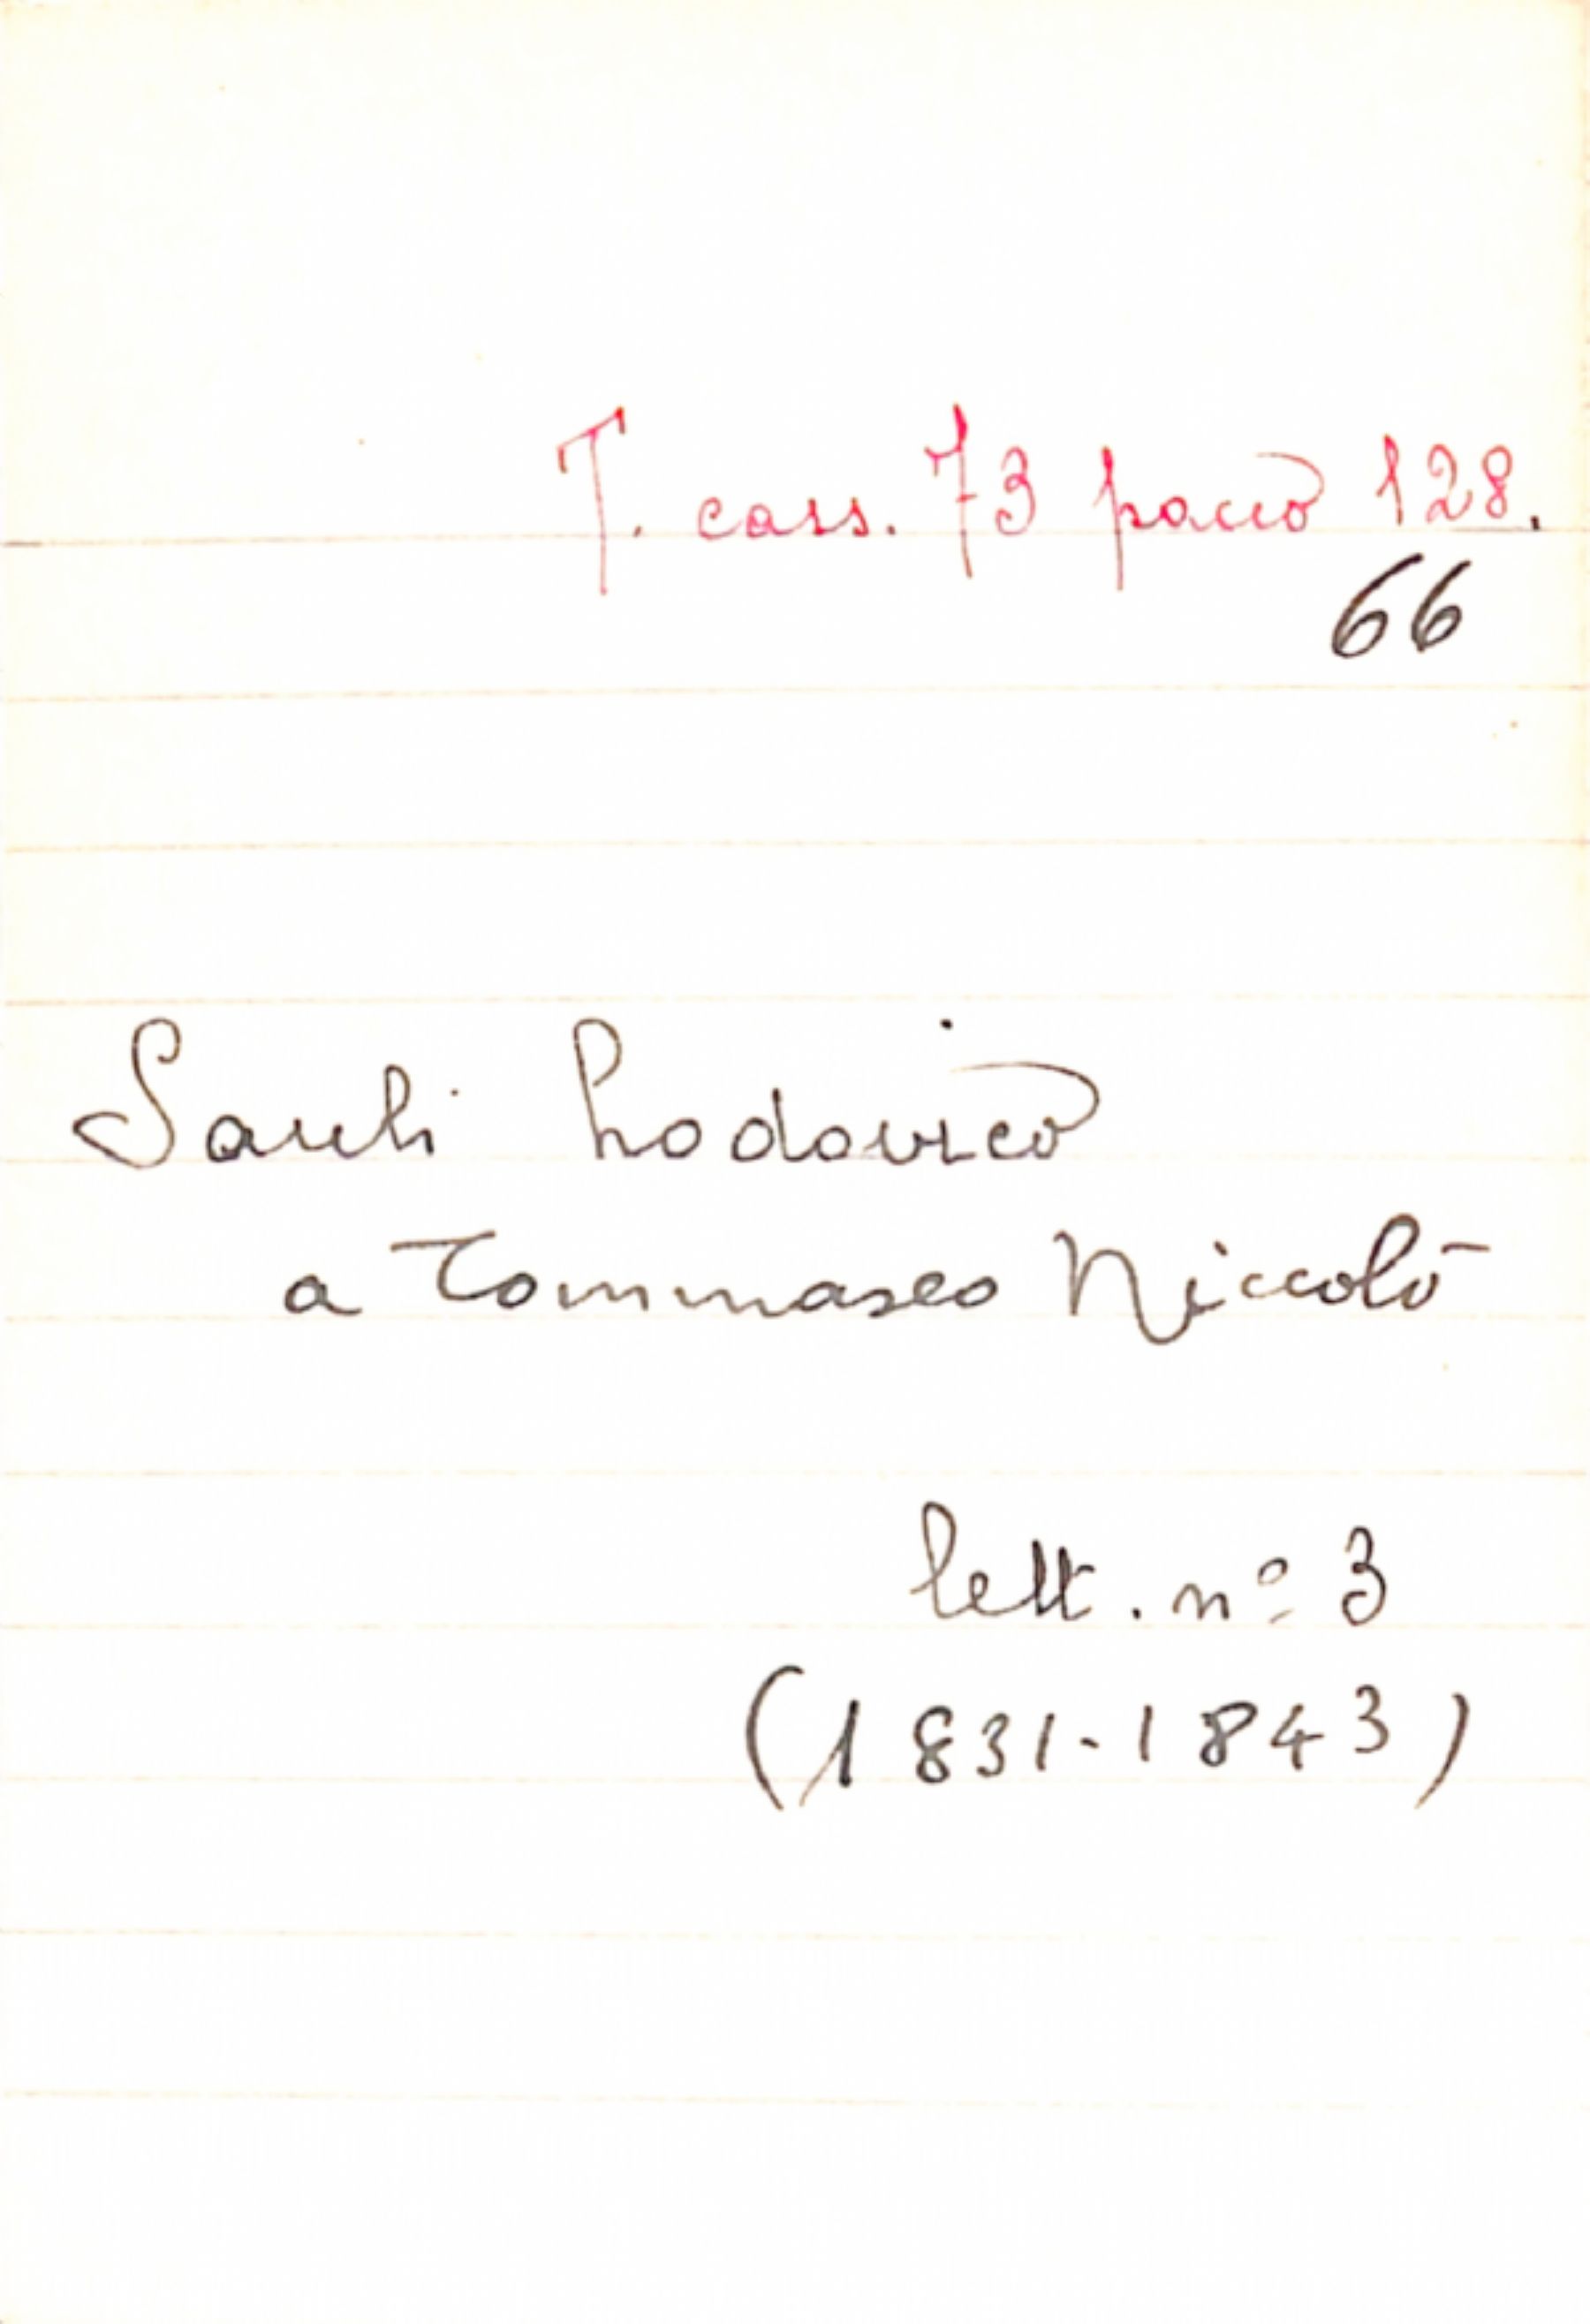 T. cass. 73 pacco 128.
66
Sauli Lodovico
a Tommaseo Niccolò
lett. nº 3
(1831-1843)